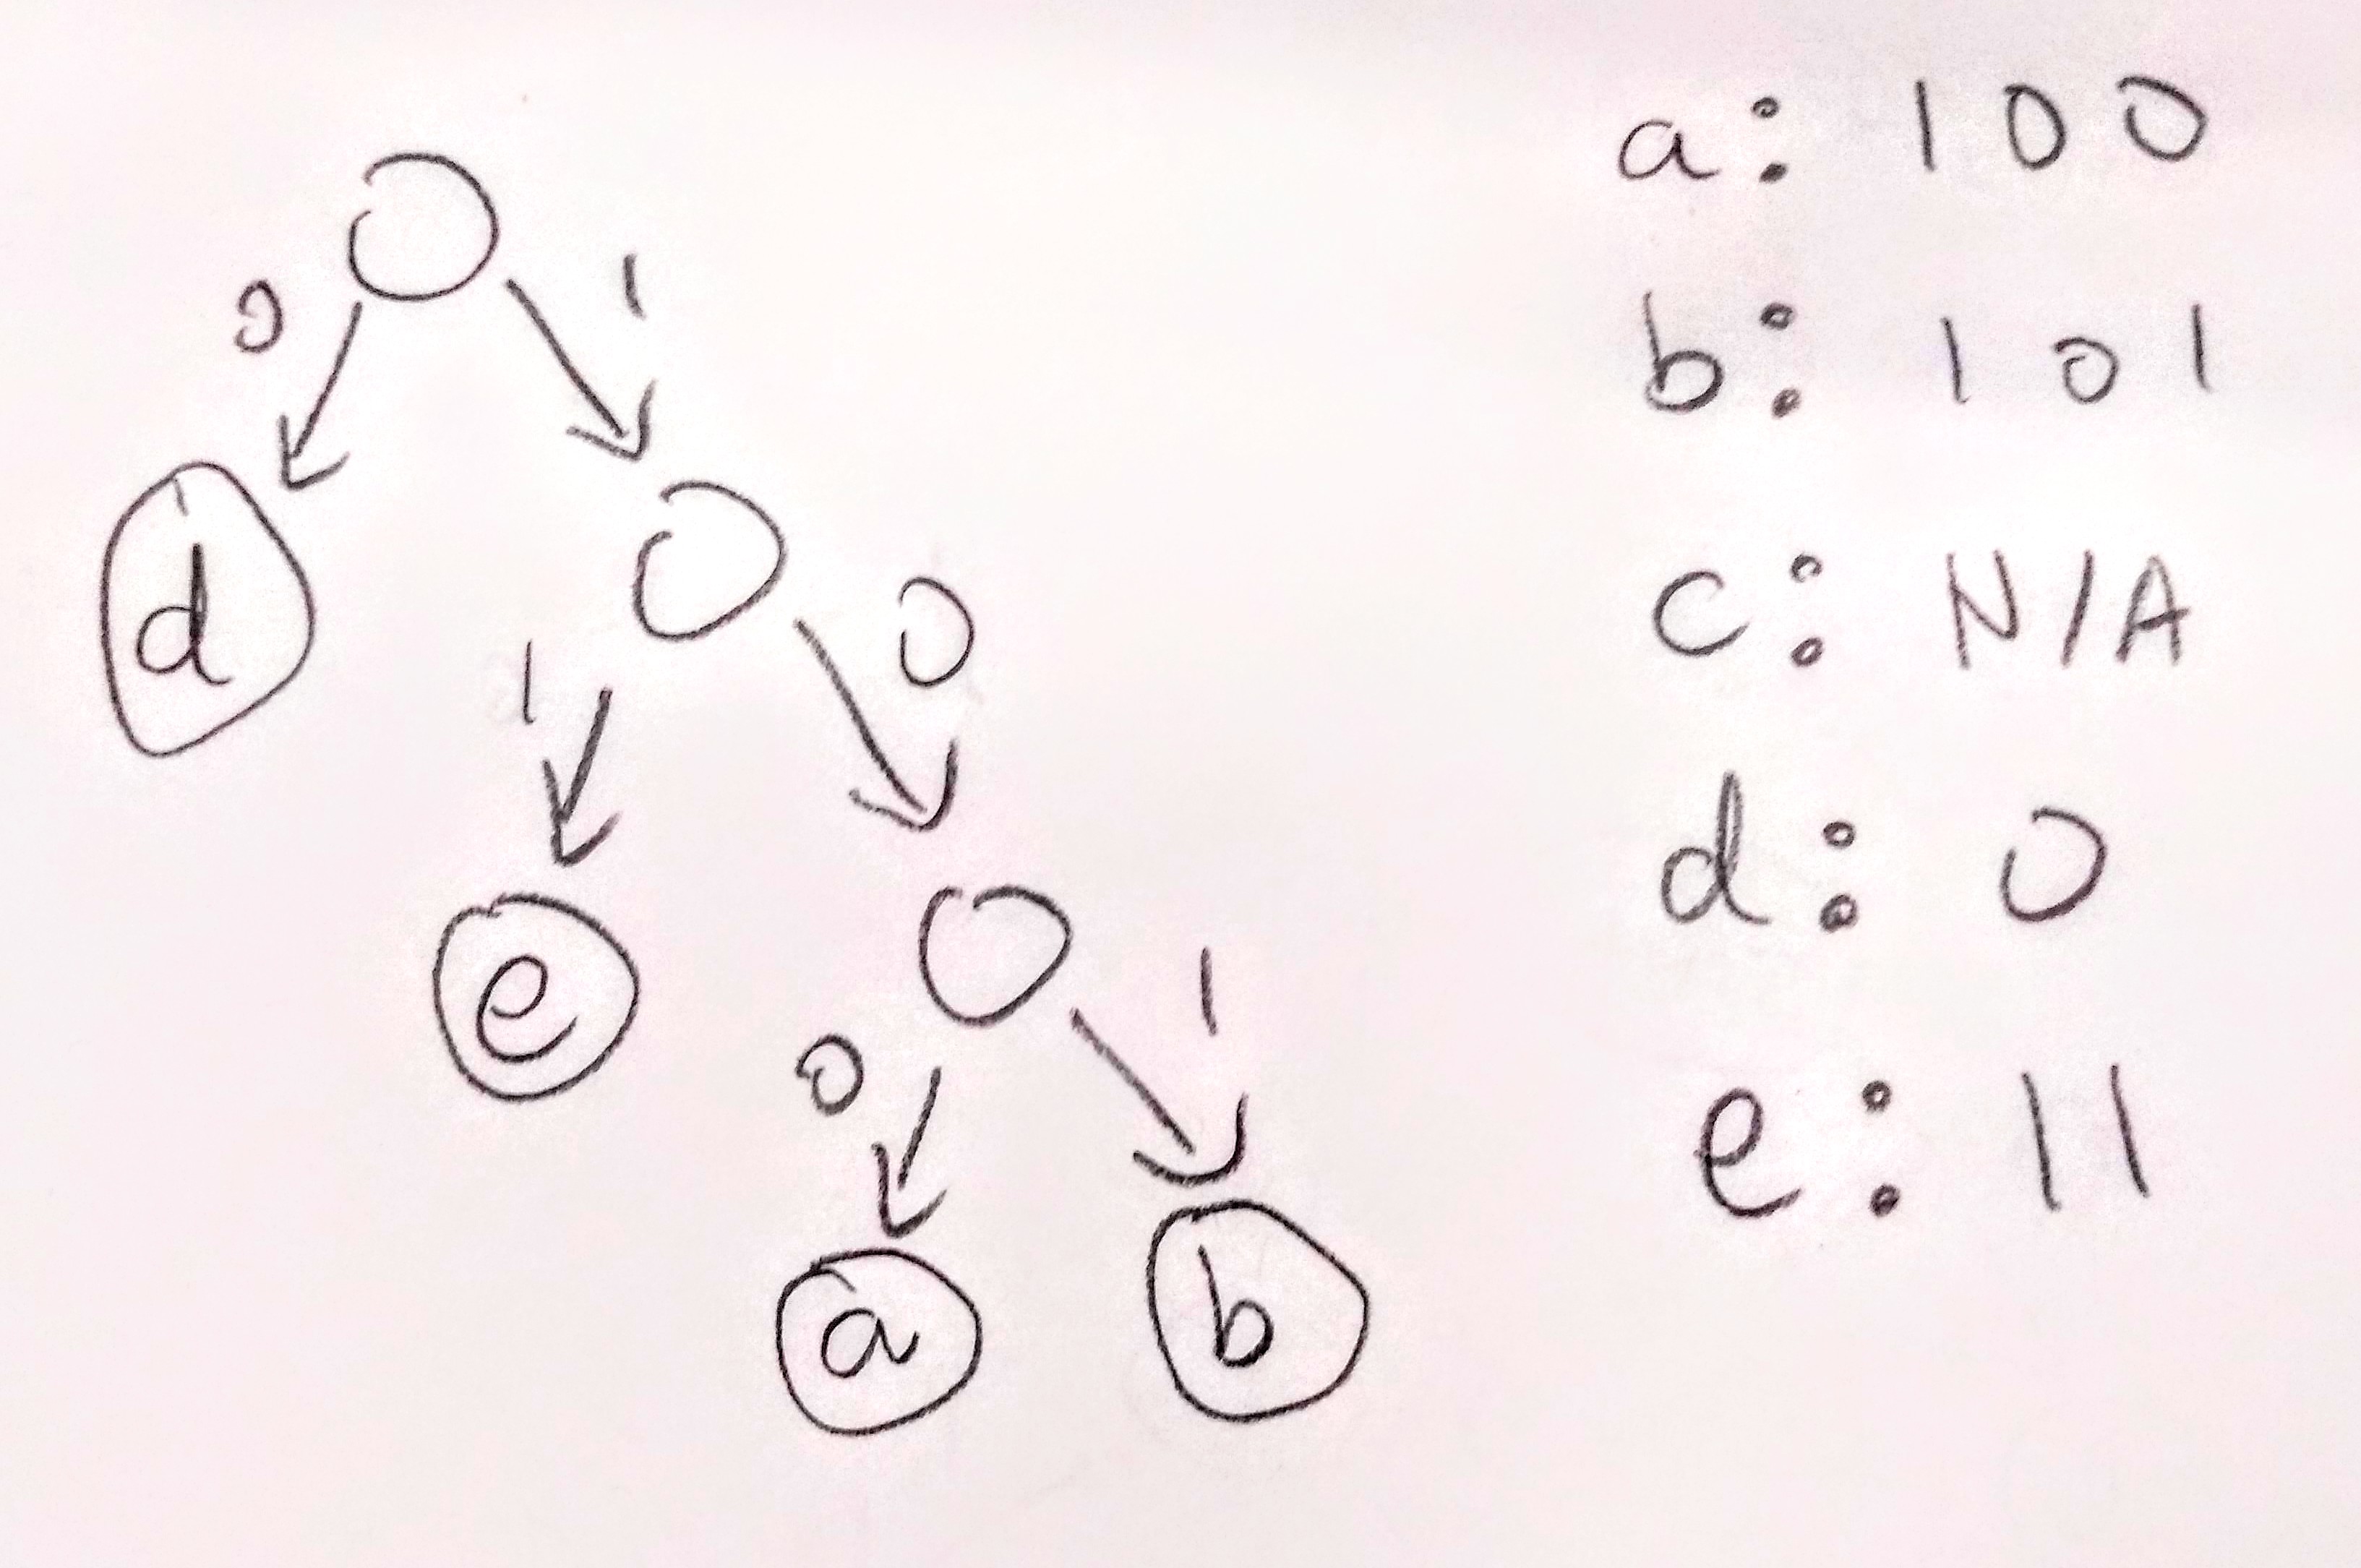 0 1
d
1 0
e
0 1
a b
a: 100
b: 101
c: N/A
d: 0
e: 11